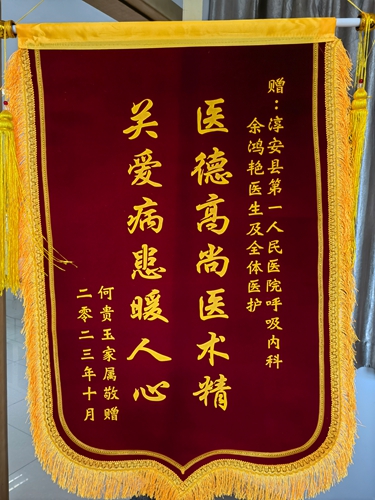 赠：淳安县第一人民医院呼吸内科
余鸿艳医生及全体医护
医德高尚医术精
关爱病患暖人心
何贵玉家属敬赠
二零二三年十月